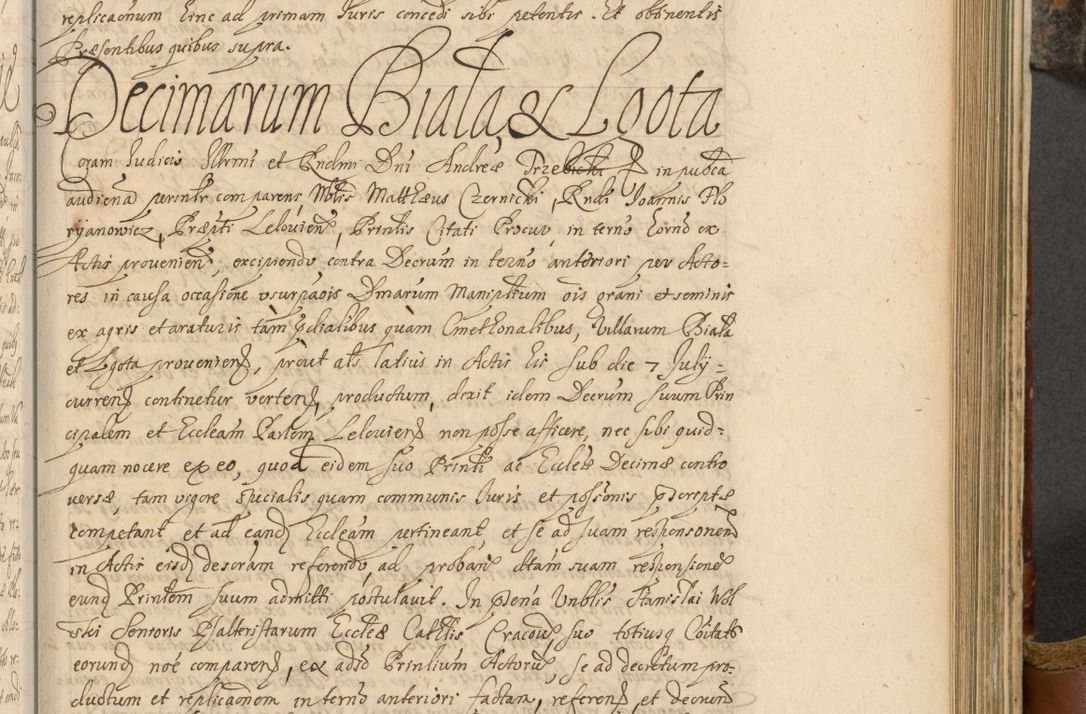 replicaōnum hinc ad primam Iuris concedi sibi petentis. Et obtinentis
Præsentibus quibus supra.
Decimarum Biała & Lgota
Coram Iudicio Illrmi et Rndmi Dni Andreæ Trzebicki in pubca
audiena personlr comparens Nblis Matthæus Czernicki, Rndi Joannis Flo
ryanowicz, Præpti Leloviens, Prinlis Citati Procur, in terno hornd ex
Actis provenien, excipiendo contra Decrum in terno anteriori per Acto=
res in causa occasione usurpaōis Dmarum Maniplium ois grani et seminis
ex agris et araturis tàm prdialibus quàm Cmethonalibus, Villarum Biała
et Lgota provenien, prout als latius in Actis his sub die 7 July =
curren continetur verten, productum, dixit idem Decrum suum Prin
cipalem et Eccleam Parlem Lelovien non posse afficere, nec sibi quid=
quam nocere ex eo, quod eidem suo Prinli ac Ecclæ Decimæ contro
versæ, tam vigore specialis quam communis Iuris et possonis præscriptæ
competant et ad eand Eccleam pertineant et se ad suam responsonem
in Actis eisd descram referendo, ad proban dtam suam responsione
eund Prinlem suum admitti postulavit. In præna Vnblis Stanislai Wol
ski Senioris Psalteristarum Ecclæ Cathlis Cracov, suo totiusq Coitats
eorund noe comparen, ex adso Prinlium Actoru, se ad decretum pro-
ductum et replicaōnem in terno anteriori factam, referen et decrum